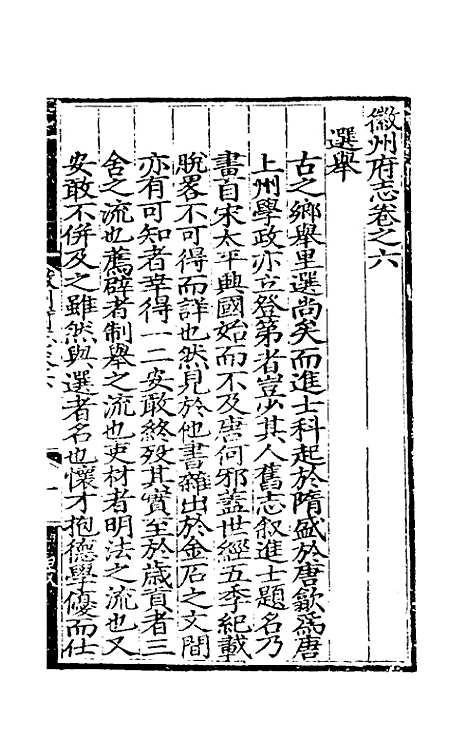 徽州府志卷之六
選舉
古之鄉舉里選尚矣而進士科起於隋盛於唐歙爲唐
上州學政亦立登第者豈少其人舊志叙進士題名乃
畫自宋太平興國始而不及唐何邪蓋世經五季紀載
脫畧不可得而詳也然見於他書雜出於金石之文間
亦有可知者幸得一二安敢終歿其實至於歲貢者三
舍之流也薦辟者制舉之流也吏材者明法之流也又
安敢不併及之雖然與選者名也懷才抱德學優而仕